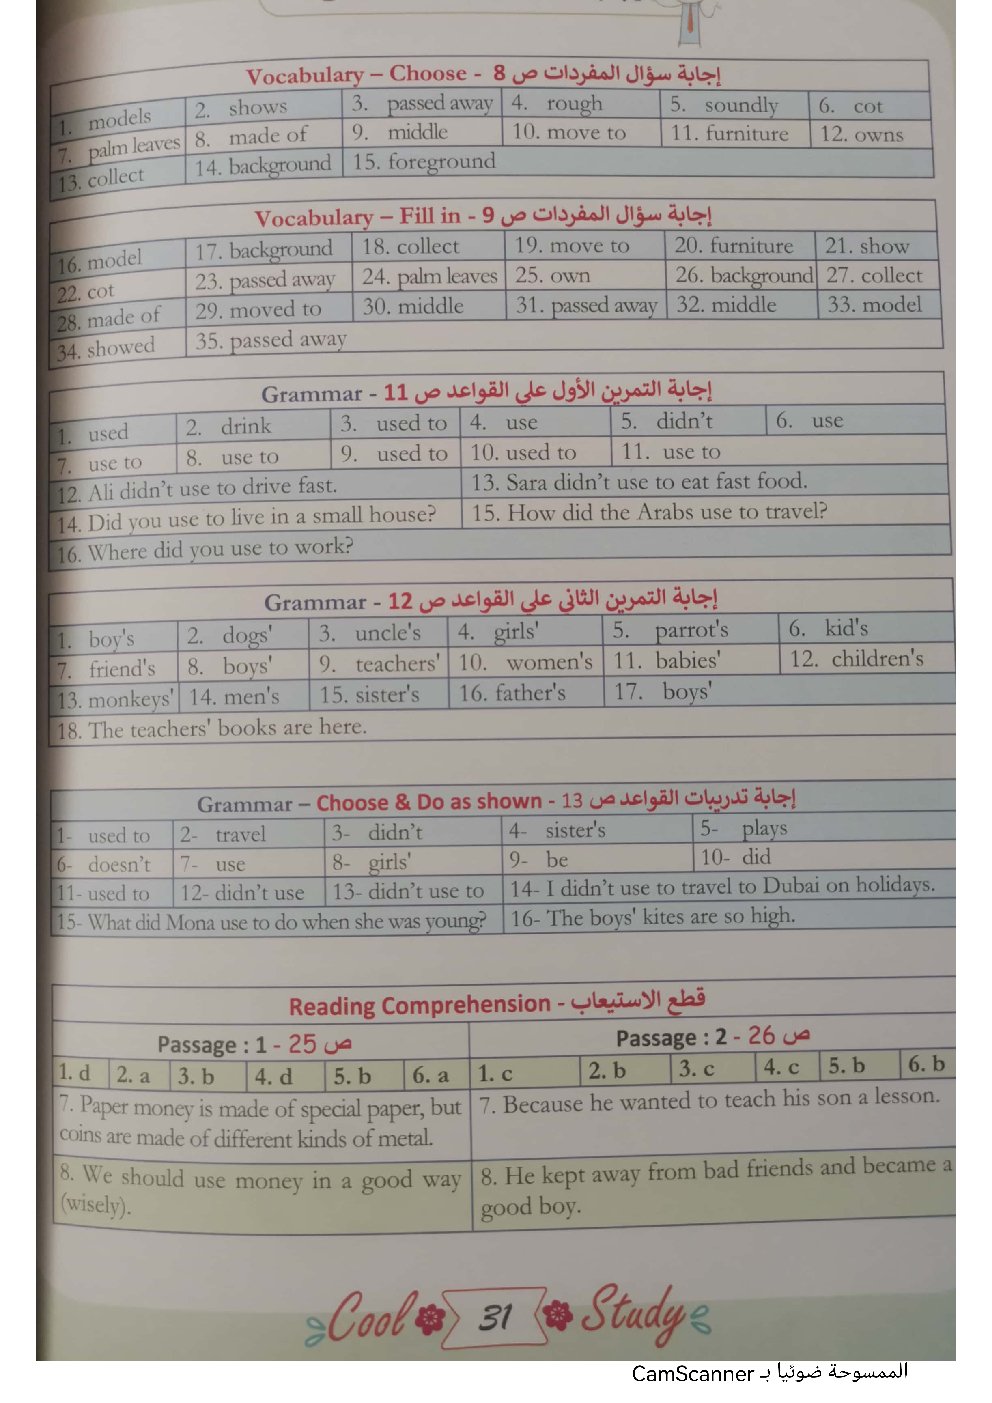 Vocabulary – Choose - إجابة سؤال المفردات ص 8
1. models 2. shows 3. passed away 4. rough 5. soundly 6. cot
7. palm leaves 8. made of 9. middle 10. move to 11. furniture 12. owns
13. collect 14. background 15. foreground
Vocabulary – Fill in - إجابة سؤال المفردات ص 9
16. model 17. background 18. collect 19. move to 20. furniture 21. show
22. cot 23. passed away 24. palm leaves 25. own 26. background 27. collect
28. made of 29. moved to 30. middle 31. passed away 32. middle 33. model
34. showed 35. passed away
Grammar - إجابة التمرين الأول علي القواعد ص 11
1. used 2. drink 3. used to 4. use 5. didn't 6. use
7. use to 8. use to 9. used to 10. used to 11. use to
12. Ali didn't use to drive fast. 13. Sara didn't use to eat fast food.
14. Did you use to live in a small house? 15. How did the Arabs use to travel?
16. Where did you use to work?
Grammar - إجابة التمرين الثاني علي القواعد ص 12
1. boy's 2. dogs' 3. uncle's 4. girls' 5. parrot's 6. kid's
7. friend's 8. boys' 9. teachers' 10. women's 11. babies' 12. children's
13. monkeys' 14. men's 15. sister's 16. father's 17. boys'
18. The teachers' books are here.
Grammar – Choose & Do as shown - إجابة تدريبات القواعد ص 13
1- used to 2- travel 3- didn't 4- sister's 5- plays
6- doesn't 7- use 8- girls' 9- be 10- did
11- used to 12- didn't use 13- didn't use to 14- I didn't use to travel to Dubai on holidays.
15- What did Mona use to do when she was young? 16- The boys' kites are so high.
Reading Comprehension - قطع الاستيعاب
Passage : 1 - ص 25 Passage : 2 - ص 26
1. d 2. a 3. b 4. d 5. b 6. a 1. c 2. b 3. c 4. c 5. b 6. b
7. Paper money is made of special paper, but 7. Because he wanted to teach his son a lesson.
coins are made of different kinds of metal.
8. We should use money in a good way 8. He kept away from bad friends and became a
(wisely). good boy.
Cool 31 Study
الممسوحة ضوئيا بـ CamScanner